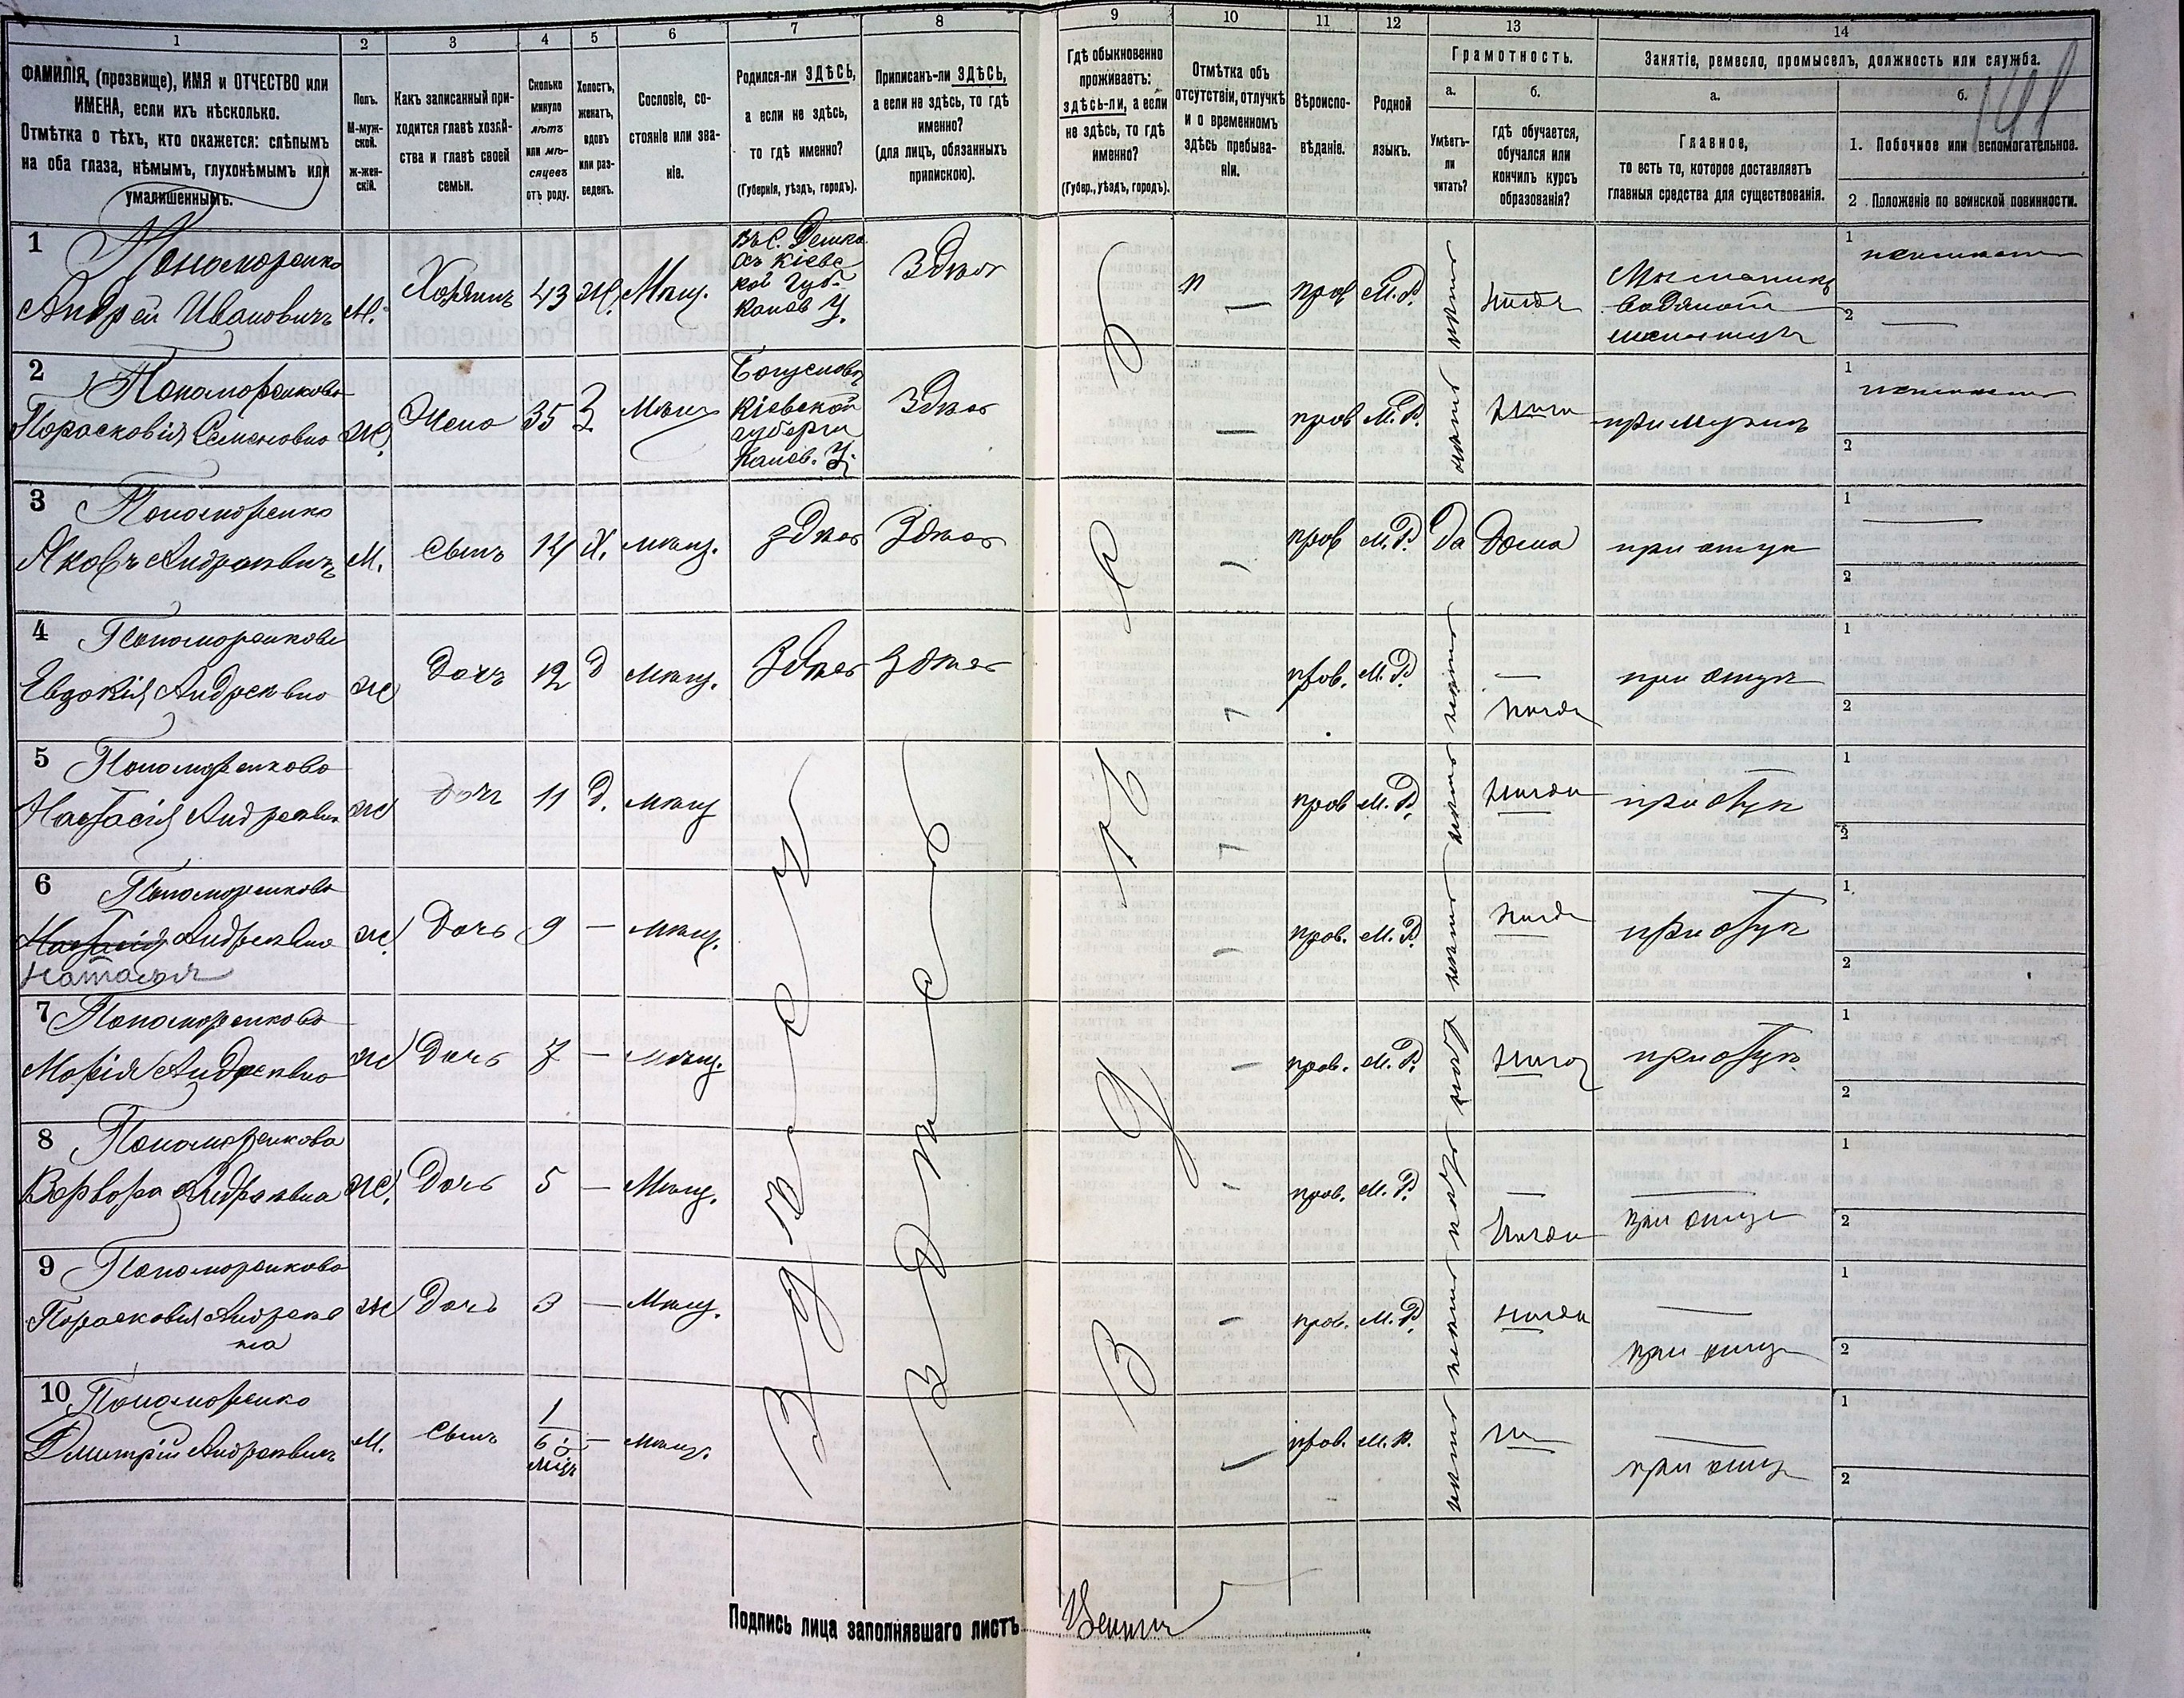 1 2 3 4 5 6 7 8 9 10 11 12 13 14
ФАМИЛІЯ, (прозвище), ИМЯ и ОТЧЕСТВО или
ИМЕНА, если ихъ нѣсколько.
Отмѣтка о тѣхъ, кто окажется: слѣпымъ
на оба глаза, нѣмымъ, глухонѣмымъ или
умалишеннымъ.
Полъ.
М-муж-
ской.
ж-жен-
скій.
Какъ записанный при-
ходится главѣ хозяй-
ства и главѣ своей
семьи.
Сколько
минуло
лѣтъ
или мѣ-
сяцевъ
отъ роду.
Холостъ,
женатъ,
вдовъ
или раз-
веденъ.
Сословіе, со-
стояніе или зва-
ніе.
Родился-ли ЗДѢСЬ,
а если не здѣсь,
то гдѣ именно?
(Губернія, уѣздъ, городъ).
Приписанъ-ли ЗДѢСЬ,
а если не здѣсь, то гдѣ
именно?
(для лицъ, обязанныхъ
припискою).
Гдѣ обыкновенно
проживаетъ:
здѣсь-ли, а если
не здѣсь, то гдѣ
именно?
(Губер., уѣздъ, городъ).
Отмѣтка объ
отсутствіи, отлучкѣ
и о временномъ
здѣсь пребыва-
ніи.
Вѣроиспо-
вѣданіе.
Родной
языкъ.
Грамотность.
а.
Умѣетъ-
ли
читать?
б.
гдѣ обучается,
обучался или
кончилъ курсъ
образованія?
Занятіе, ремесло, промыселъ, должность или служба.
а.
Главное,
то есть то, которое доставляетъ
главныя средства для существованія.
б.
1. Побочное или вспомогательное.
2. Положеніе по воинской повинности.
1 Пономоренко
Андрей Ивановичъ М. Хозяинъ 43 Ж. Мѣщ.
Кіевс
кой Губ.
Канев У.
Здѣсь
прав М.Р. нѣтъ нигдѣ
водяной
1
2
2 Пономоренкова
Порасковія Семеновна Ж. Жена 35 З Мѣщ
Кіевской
губерни
Канев. У.
Здѣсь
пров М.Р. нѣтъ при мужѣ
1
2
3 Пономоренко
Яковъ Андреевичъ М. Сынъ 14 Х. мѣщ. здѣсь Здѣсь пров М.Р. Да Дома при отцѣ
1
2
4 Пономоренкова
Евдокія Андреевно Ж Дочъ 12 д мѣщ. Здѣсь Здѣсь пров. М.Р. нѣтъ Нигдѣ при отцѣ
1
2
5 Пономоренково
Настасія Андреевн Ж Дочъ 11 д. мѣщ пров М.Р. нѣтъ Нигдѣ при отцѣ
1
2
6 Пономоренково
Настасія Андреевно Ж. Дочь 9 — мѣщ. пров. М.Р. нѣтъ нигдѣ при отцѣ
Наталья
1
2
7 Пономоренково
Морія Андреевно Ж Дочь 7 — мѣщ. пров. М.Р. нѣтъ нигдѣ при отцѣ
1
2
8 Пономоренкова
Ворвора Андреевна Ж. Дочь 5 — Мѣщ. пров. М.Р. нѣтъ Нигдѣ при отцѣ
1
2
9 Пономоренково
Порасковия Андреев
на
Ж Дочь 3 — Мѣщ. пров. М.Р. нѣтъ нигдѣ при отцѣ
1
2
10 Пономоренко
Дмитрій Андреевичъ М. Сынъ 1 — мѣщ. пров. М.Р. нѣтъ при отцѣ
1
2
Здѣсь
Здѣсь
Здѣсь
Подпись лица заполнявшаго листъ